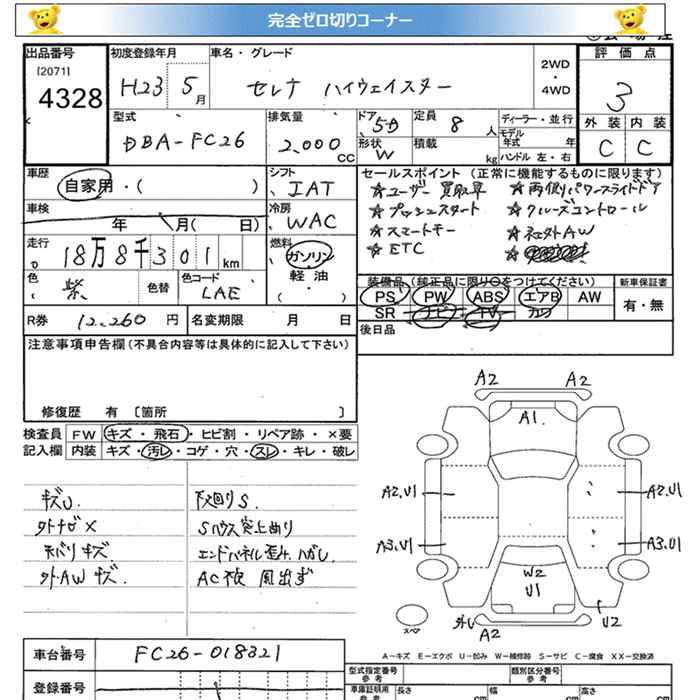 完全ゼロ切りコーナー
出品番号
[2071]
4328
初度登録年月
H23 5月
車名・グレード
セレナ ハイウェイスター
2WD・4WD
評価点
3
外装 内装
C C
型式
DBA-FC26
排気量
2,000 CC
ドア 5D
形状 W
定員 8人
積載 kg
ディーラー・並行
モデル年式 年
ハンドル 左・右
車歴
自家用・( )
シフト
IAT
車検
年 月( 日)
冷房
WAC
走行
18万8千301km
燃料
ガソリン
軽油
( )
色
紫
色替
色コード
LAE
セールスポイント (正常に機能するものに限ります)
☆ユーザー買取車 ☆両側パワースライドドア
☆プッシュスタート ☆クルーズコントロール
☆スマートキー ☆社外AW
☆ETC
装備品(純正品に限り○をつけてください)
PS PW ABS エアB AW
SR ナビ TV カワ
新車保証書
有・無
R券 12,260円 名変期限 月 日
後日品
注意事項申告欄(不具合内容等は具体的に記入して下さい)
修復歴 有 〔箇所 〕
検査員記入欄
FW キズ・飛石・ヒビ割・リペア跡・×要
内装 キズ・汚レ・コゲ・穴・スレ・キレ・破レ
キズU.
外ナビ×
ネバリキズ
外AWキズ.
下回りS.
Sハウス突上あり
エンドパネル歪み.ハガレ.
AC 風出ず
A2 A2
A1
A2,U1 A2,U1
A3,U1 A3,U1
W2
U1
外レ
A2
U2
スペア
A―キズ E―エクボ U―凹み W―補修跡 S―サビ C―腐食 XX―交換済
車台番号 FC26-018321
登録番号
型式指定番号
参考
類別区分番号
参考
車庫証明用
参考
長さ cm
幅 cm
高さ cm